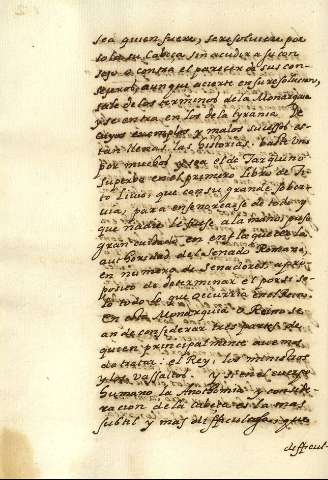 sea quien fuere, se resoluiere por
sola su Cabeça sin acudir a su Con
sejo o contra el parecer de sus con
sejeros, aunque acierte en su resolucion,
sale de los terminos de la Monarquia
y se entra en los de la tyrania. De
cuyos exemplos y malos sucessos es
tan llenas las historias. baste uno
por muchos y sea el de Tarquino
Superbo en el primero Libro de Ti
to Liuio, que con su grande sober
uia, para enseñorearse de todo y
que nadie le fuese a la mano, puso
gran cuidado en enflaquecer la
authoridad del Senado Romano,
en numero de Senadores, a pro
posito de determinar el por si so
lo todo lo que occurria en el Reyno.
En esta Monarquia o Reino se
an de considerar tres partes de
quien principalmente auemos
de tratar: el Rey, los ministros
y los vassallos. y si en el cuerpo
humano la Anothomia y conside
racion de la cabeça es la mas
subtil y mas difficultosa, que
difficul-